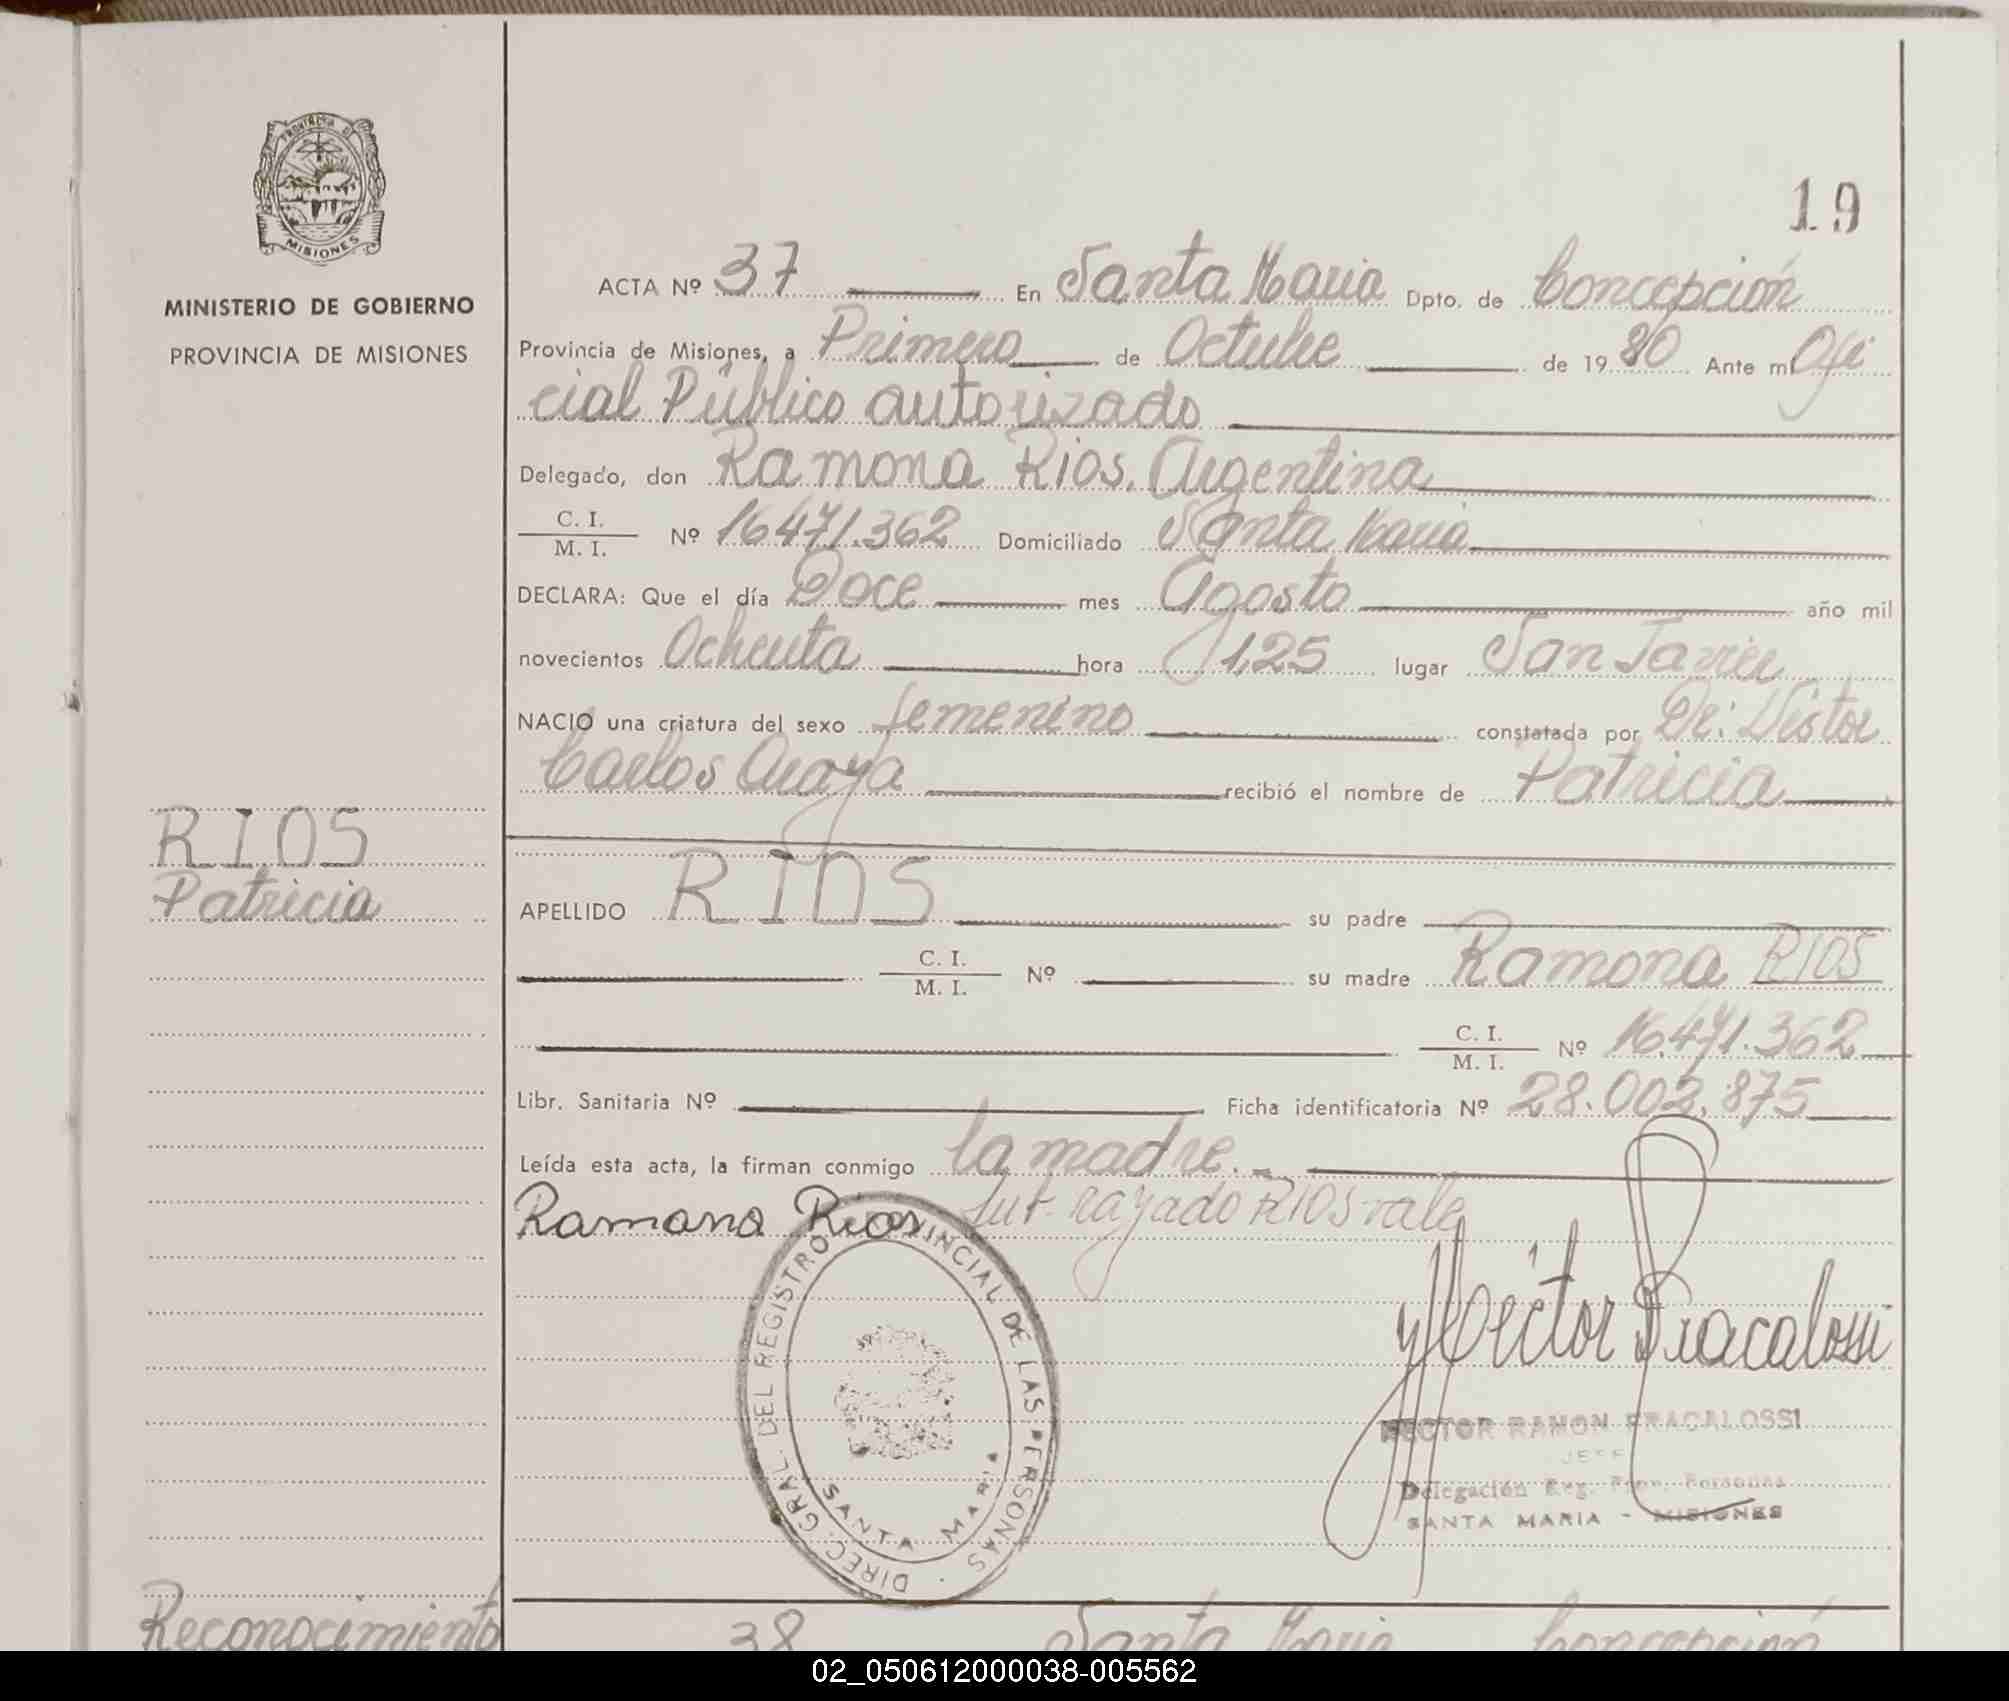 PROVINCIA DE
MISIONES
MINISTERIO DE GOBIERNO
PROVINCIA DE MISIONES
19
ACTA Nº 37 En Santa Maria Dpto. de Concepción
Provincia de Misiones, a Primero de Octubre de 1980 Ante mi Ofi
cial Público autorizado
Delegado, don Ramona Rios, Argentina
C. I.
M. I. Nº 16471.362 Domiciliado Santa Maria
DECLARA: Que el día Doce mes Agosto año mil
novecientos Ochenta hora 1,25 lugar San Javier
NACIO una criatura del sexo femenino constatada por Dr: Victor
Carlos Araya recibió el nombre de Patricia
RIOS
Patricia
APELLIDO RIOS su padre
C. I.
M. I. Nº su madre Ramona RIOS
C. I.
M. I. Nº 16.471.362
Libr. Sanitaria Nº Ficha identificatoria Nº 28.002.875
Leída esta acta, la firman conmigo la madre.-
Ramona Rios Sub-rayado RIOS vale
Hector Fracalossi
DIREC. GRAL. DEL REGISTRO PROVINCIAL DE LAS PERSONAS
SANTA MARIA
HECTOR RAMON FRACALOSSI
JEFE
Delegación Reg. Prov. Personas
SANTA MARIA - MISIONES
Reconocimiento
38 Santa Maria Concepción
02_050612000038-005562